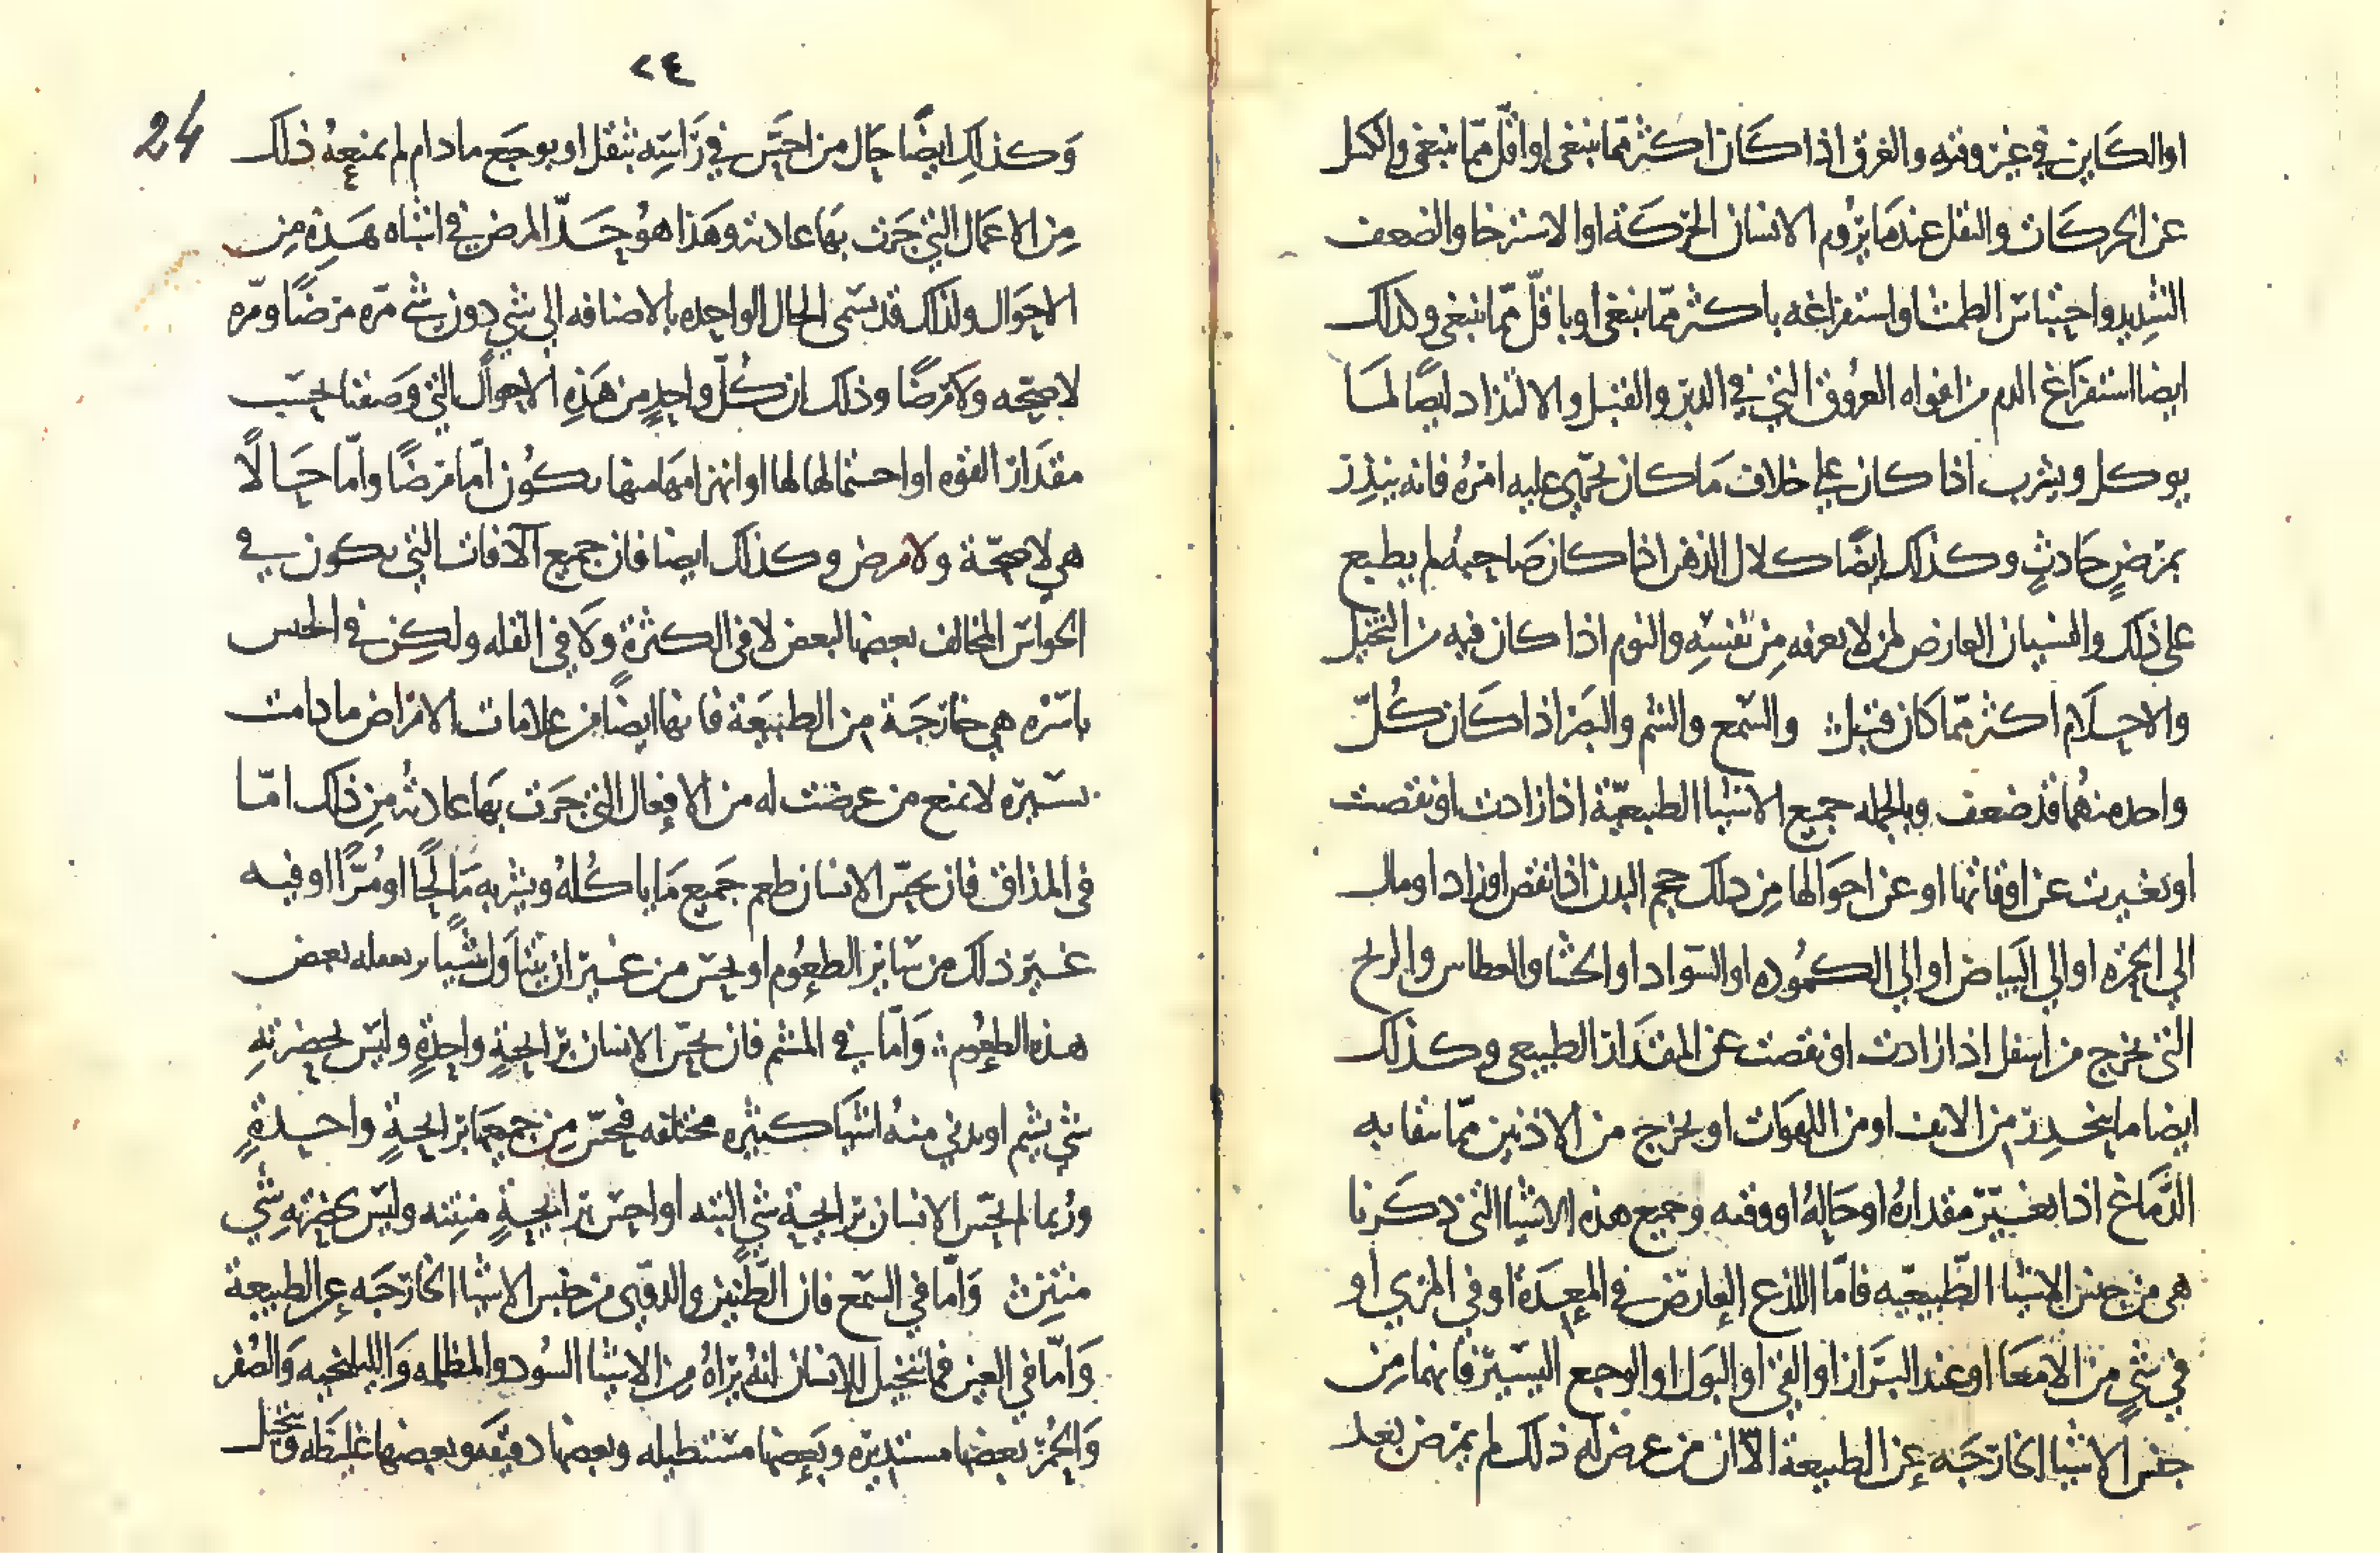 او الكاين في غير وقته والعرق اذا كان اكثر مما ينبغي او اقل مما ينبغي والكسل
عن الحركات والثقل عندما يروم الانسان الحركة او الاسترخا والضعف
الشديد واحتباس الطمث او استفراغه باكثر مما ينبغي او باقل مما ينبغي وكذلك
ايضا استفراغ الدم من افواه العروق التي في الدبر والقبل والالتذاذ ايضًا لما
يوكل ويشرب اذا كان علي خلاف مَا كان يجري عليه امرهُ فانه ينذر
بمرضٍ حَادثٍ وكذلك ايضًا كلال الذهن اذا كان صَاحبهُ لم يطبع
على ذلك والنسيان العارض لمن لا يعرفه مِن نفسِهِ والنوم اذا كان فيه من التخيل
والاحلام اكثر ممّا كان قبل والسّمع والشم والبصَر اذا كان كُلّ
واحد منهُما قد ضعف وبالجمله جميع الاشيا الطبيعيّة اذا زادت او نقصت
او تغيرت عن اوقاتها او عن احوَالها مِن ذلك حجم البدن اذا نقص او زاد او مال
الي الحمره او الي البَياض او الي الكمُوده او السّواد او الجشا والعطاس والريح
التي تخرج من اسفل اذا زادت او نقصت عن المقدَار الطبيعي وكذلك
ايضا ما ينحدر من الانف او من اللهَوَات او يخرج من الاذنين ممّا ينقا به
الدّمَاغ اذا تغيّر مقدارهُ او حَالهُ او وقته وجميع هذه الاشيا التي ذكرنا
هي من جنس الاشيا الطّبيعيّه فامّا اللذع العارض في المعِدَة او في المري او
في شيٍ من الامعَا او عند البرَاز او القي او البَول او الوجع اليسير فانهما مِن
جنس الاشيا الخارجَه عن الطبيعة الّا ان من عرض له ذلك لم يمرض بعد
٢٤
24
وَكذلك ايضًا حَال من احَسّ في رَاسِه بثقل او بوجَع ما دام لم يمنعهُ ذلك
مِن الاعمَال التي جَرَت بهَا عادته وهَذا هوُ حَدّ المرض في اشباه هَذِه مِن
الاحوَال ولذلك قد يسَمي الحال الواحِده بالاضافه الي شيٍ دون شي مرّه مرضًا ومرّه
لا صحّه ولا مرضًا وذلك ان كُلّ واحدٍ من هَذِه الاحوَال التي وَصفنا بحسَب
مقدَار القوه او احتمالها لها او انهزامهَا منها يكُون امّا مرضًا وامّا حَالًا
هي لا صحّة ولا مرض وكذلك ايضا فان جميع الافات التي يكون في
الحوَاس المخالف بعضها لبعض لا في الكثرة ولا في القله ولكن في الجنس
باسره هي خارجَة من الطبيعَة فانها ايضًا من علامات الامراض ما دامت
يسَيره لا تمنع من عرضت له من الافعال التي جَرَت بهَا عادتهُ مِن ذلك امّا
في المذاق فان يحسّ الانسان طعم جَميع مَا ياكلهُ ويشربه مَالحًا او مُرًّا او فيه
غير ذلك من سَاير الطعُوم او يحسّ من غير ان يتنَاوَل شيًا يفعله بعض
هذه الطعُوم وَامّا في المشم فان يحسّ الانسان برايحةٍ واحِدةٍ وليس بحضرتهِ
شي يشم او يدني منهُ اشيَا كثيره مختلفه فيحسّ مِن جميعهَا برايحةٍ واحدةٍ
ورُبما لم يحسّ الانسان برايحة شيٍ البته او احسّ برايحةٍ منتِنه وليسَ بحضرتهِ شي
منتن وَامّا في السّمع فان الطّنين والدوي من جنس الاشيا الخارجَه عن الطبيعة
وَامّا في العين فما تتخيل للانسان انهُ يرَاهُ مِن الاشيا السُود والمظلمه وَالبلخيه وَالصُفر
وَالحمُر بعضها مستديره وبَعضها مسَتطيله وبعضها دقيقه وبعضها غليظَه وتخيل